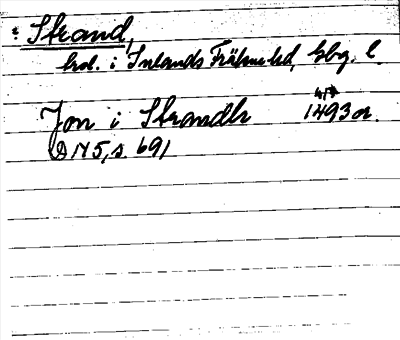 : Strand,
hd. i Inlands Fräkne hd, Gbg. l.
Jon i Strandh 14/7 1493 or.
DN 5, s. 691